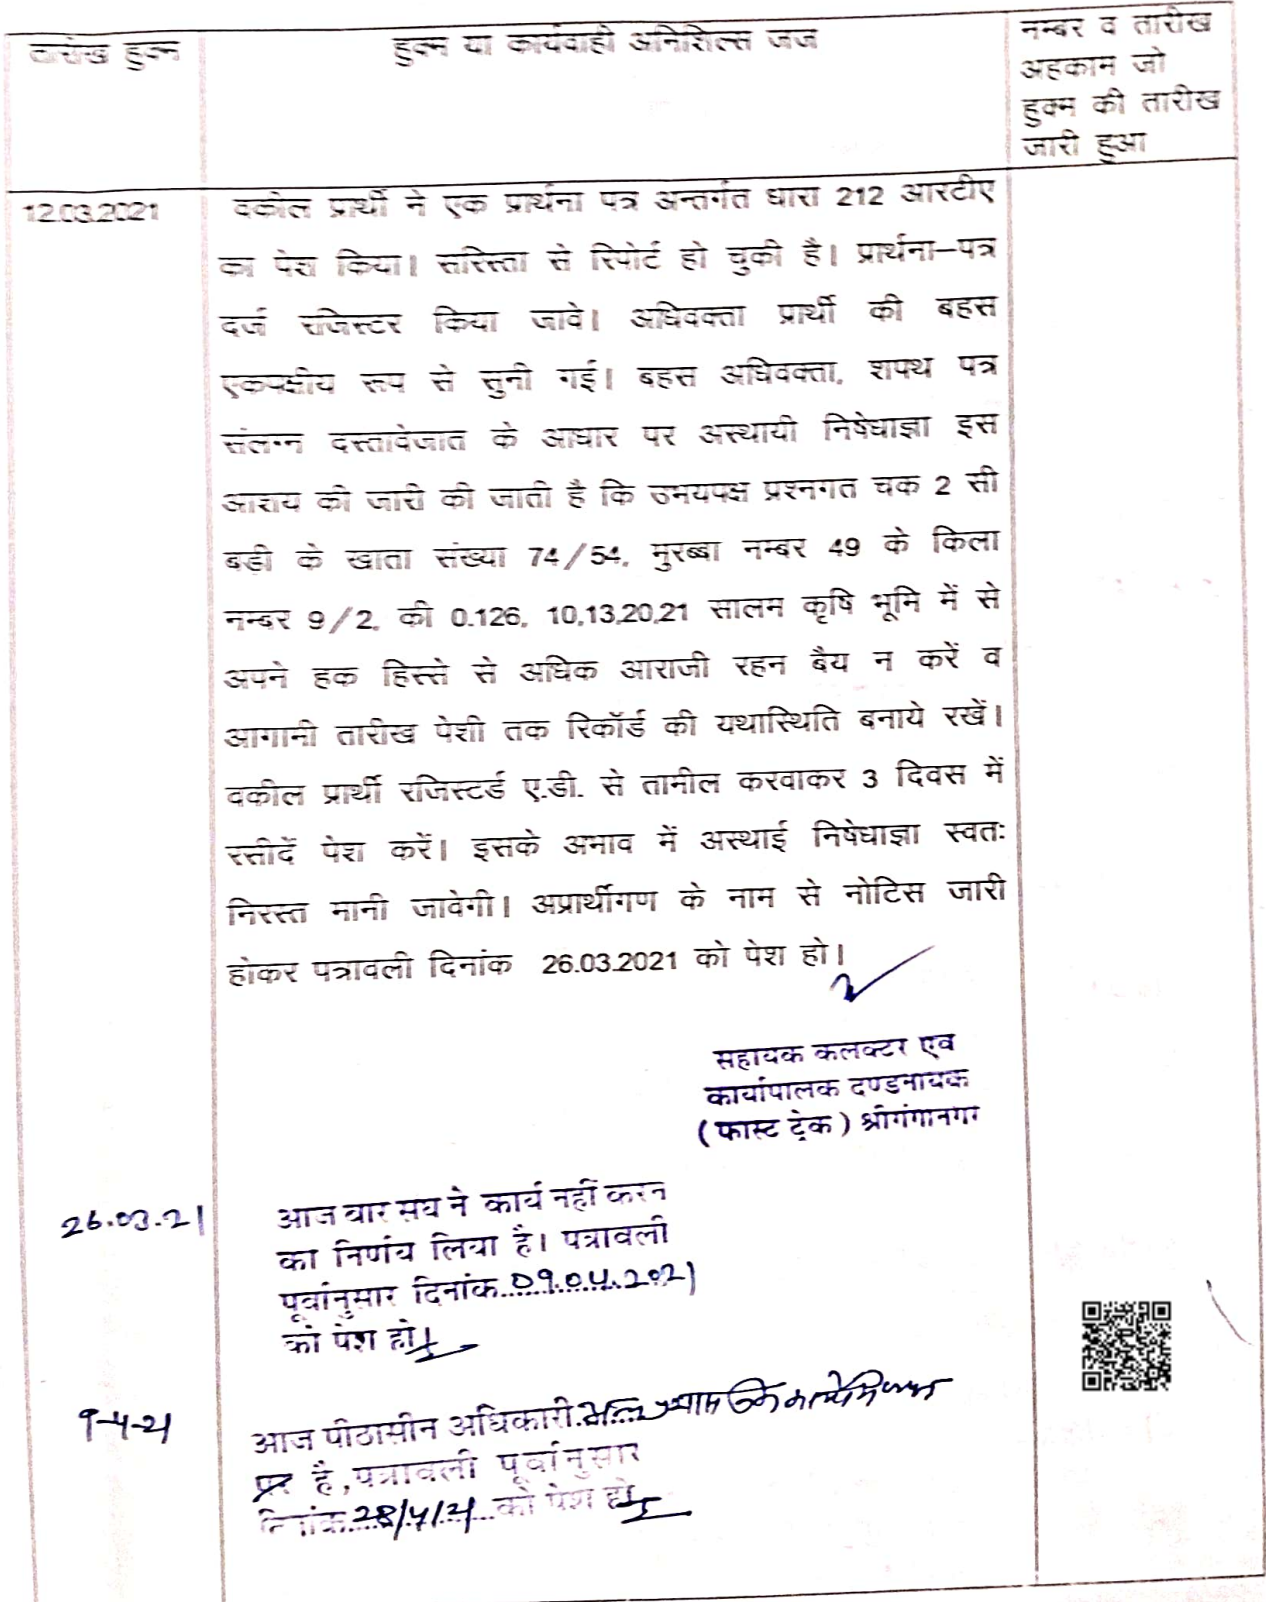 तारीख हुक्म
हुक्म या कार्यवाही अनिशिल्स जज
नम्बर व तारीख
अहकाम जो
हुक्म की तारीख
जारी हुआ
12.03.2021
वकील प्रार्थी ने एक प्रार्थना पत्र अन्तर्गत धारा 212 आरटीए
का पेश किया। सरिस्ता से रिपोर्ट हो चुकी है। प्रार्थना–पत्र
दर्ज रजिस्टर किया जावे। अधिवक्ता प्रार्थी की बहस
एकपक्षीय रूप से सुनी गई। बहस अधिवक्ता, शपथ पत्र
संलग्न दस्तावेजात के आधार पर अस्थायी निषेधाज्ञा इस
आशय की जारी की जाती है कि उभयपक्ष प्रश्नगत चक 2 सी
बडी के खाता संख्या 74/54, मुरब्बा नम्बर 49 के किला
नम्बर 9/2, की 0.126, 10,13,20,21 सालम कृषि भूमि में से
अपने हक हिस्से से अधिक आराजी रहन बैय न करें व
आगामी तारीख पेशी तक रिकॉर्ड की यथास्थिति बनाये रखें।
वकील प्रार्थी रजिस्टर्ड ए.डी. से तामील करवाकर 3 दिवस में
रसीदें पेश करें। इसके अभाव में अस्थाई निषेधाज्ञा स्वतः
निरस्त मानी जावेगी। अप्रार्थीगण के नाम से नोटिस जारी
होकर पत्रावली दिनांक 26.03.2021 को पेश हो।
सहायक कलक्टर एव
कार्यापालक दण्डनायक
(फास्ट ट्रेक) श्रीगंगानगर
26.03.21
आज बार संघ ने कार्य नहीं करन
का निर्णय लिया है। पत्रावली
पूर्वानुसार दिनांक 09.04.2021
को पेश हो।
9-4-21
आज पीठासीन अधिकारी
पर है, पत्रावली पूर्वानुसार
दिनांक 28/4/21 को पेश हो